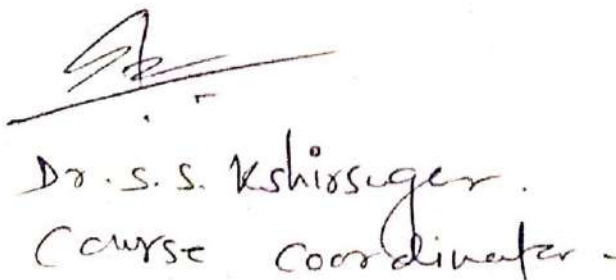 Dr. S. S. Kshirsagar.
Course Coordinator.